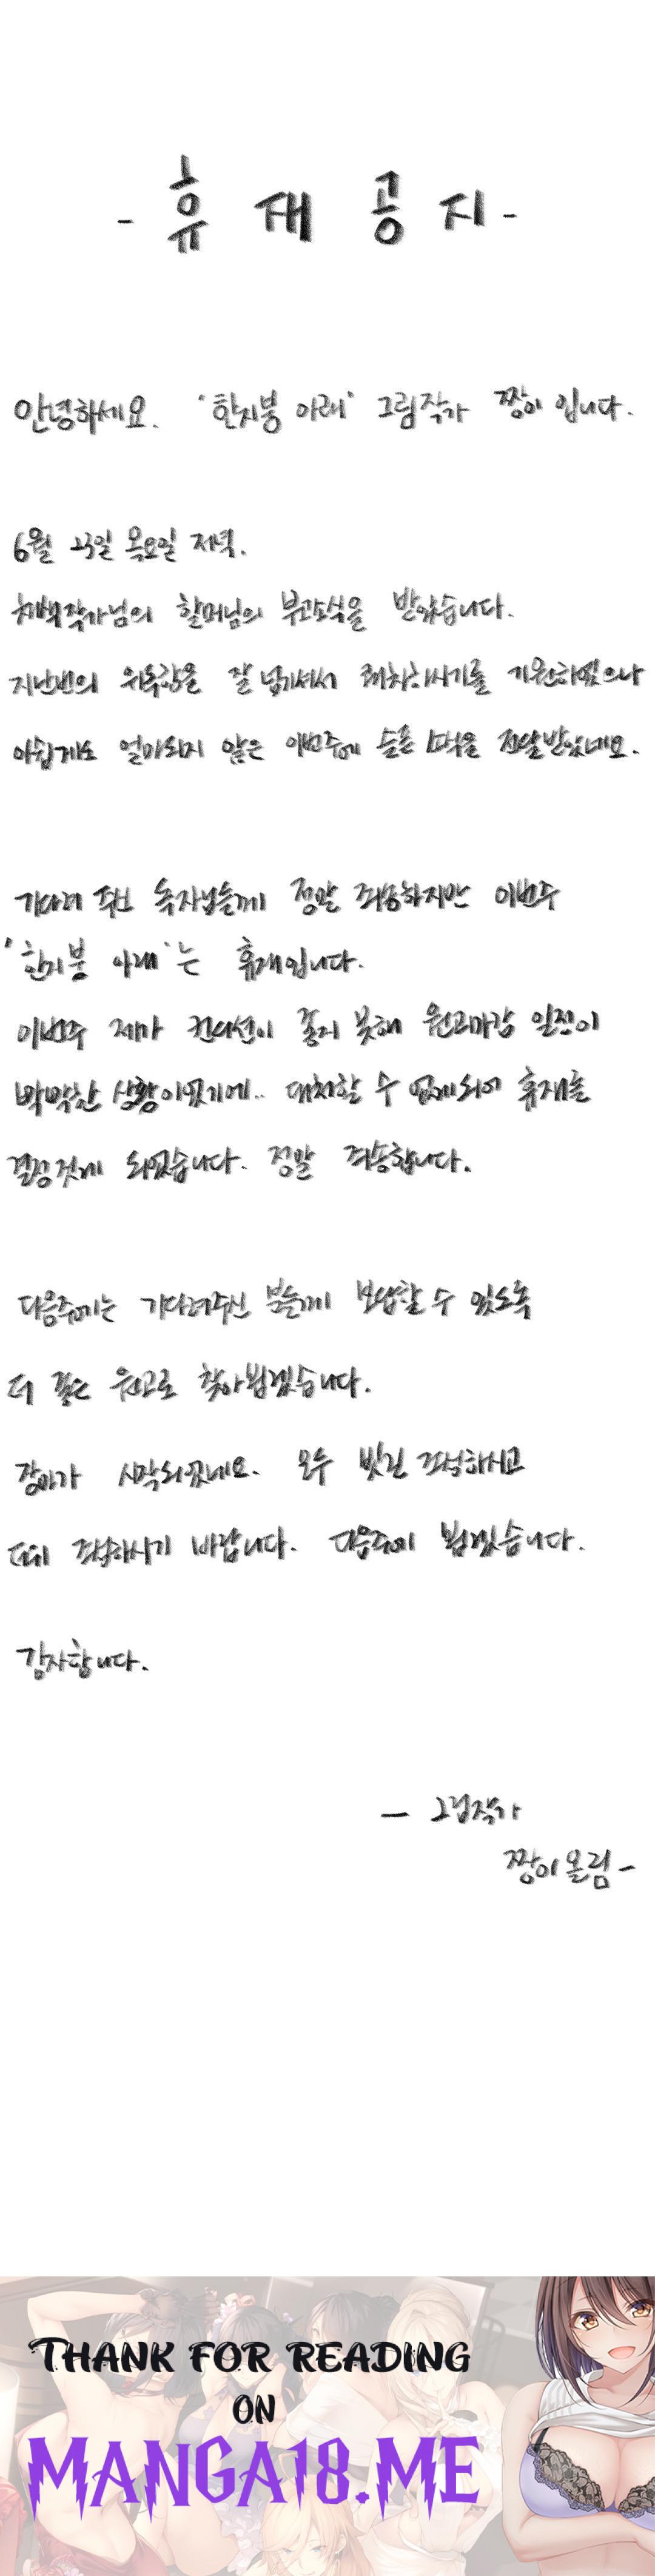 - 휴 재 공 지 -
안녕하세요. '한지붕 아래' 그림작가 짱이 입니다.
6월 23일 목요일 저녁.
작가님의 할머님의 부고소식을 받았습니다.
지난번의 위독함은 잘 넘기셔서 쾌차하시기를 기원하였으나
아쉽게도 얼마되지 않은 이번주에 슬픈 소식을 전달받았네요.
기다려 주신 독자님들께 정말 죄송하지만 이번주
'한지붕 아래'는 휴재입니다.
이번주 제가 컨디션이 좋지 못해 원고마감 일정이
빡빡한 상황이였기에.. 대처할 수 없게되어 휴재를
결정짓게 되었습니다. 정말 죄송합니다.
다음주에는 기다려주신 분들께 보답할 수 있도록
더 좋은 원고로 찾아뵙겠습니다.
장마가 시작되었네요. 모두 빗길 조심하시고
조심하시기 바랍니다. 다음주에 뵙겠습니다.
감사합니다.
- 그림작가
짱이 올림 -
THANK FOR READING
ON
MANGA18.ME